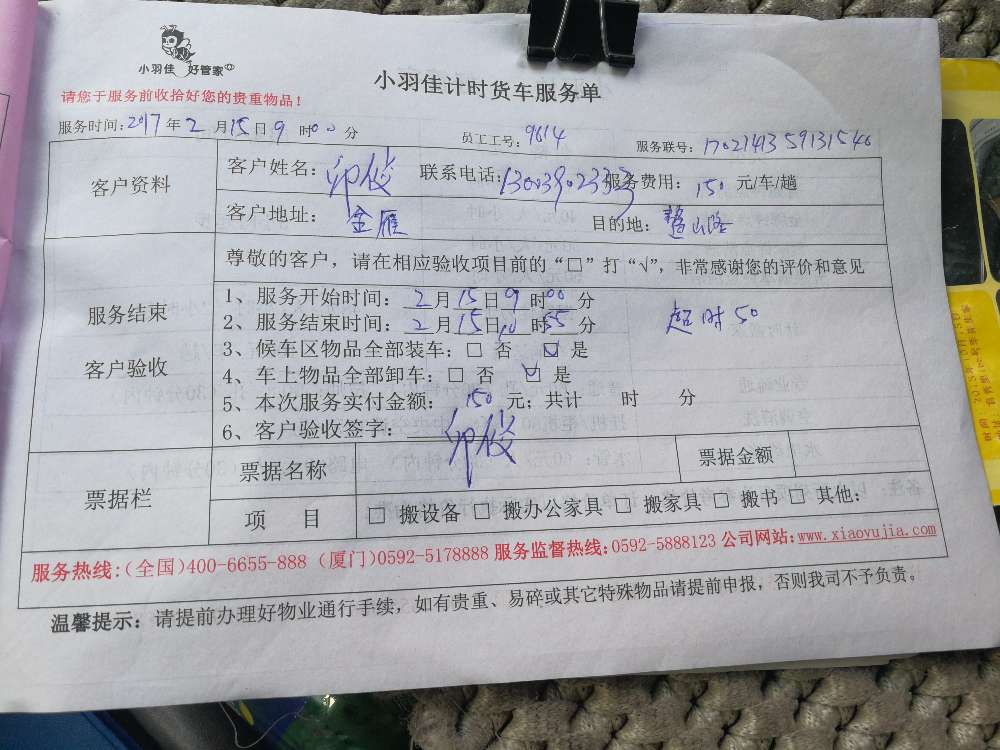 小羽佳 好管家
小羽佳计时货车服务单
请您于服务前收拾好您的贵重物品！
服务时间：2017年2月15日9时00分 员工工号：9614 服务联号：1702141359131546
客户资料
客户姓名：印俊 联系电话：13003902333 服务费用：150元/车/趟
客户地址：金雁 目的地：鳌山路
服务结束
客户验收
尊敬的客户，请在相应验收项目前的“□”打“√”，非常感谢您的评价和意见
1、服务开始时间：2月15日9时00分
2、服务结束时间：2月15日10时55分
超时50
3、候车区物品全部装车：□ 否 ☑ 是
4、车上物品全部卸车：□ 否 ☑ 是
5、本次服务实付金额：150元；共计 时 分
6、客户验收签字：印俊
票据栏
票据名称 票据金额
项 目 □ 搬设备 □ 搬办公家具 □ 搬家具 □ 搬书 □ 其他：
服务热线：(全国)400-6655-888 (厦门)0592-5178888 服务监督热线：0592-5888123 公司网站：www.xiaoyujia.com
温馨提示：请提前办理好物业通行手续，如有贵重、易碎或其它特殊物品请提前申报，否则我司不予负责。